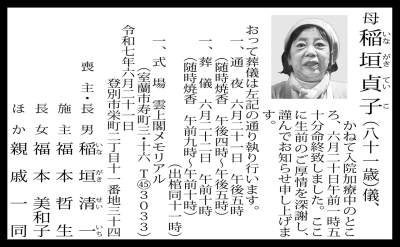 母 稲垣貞子(八十一歳)儀、
いな がき てい こ
かねて入院加療中のとこ
ろ、六月二十日午前一時五
十分命終致しました。ここ
に生前のご厚情を深謝し、
謹んでお知らせ申し上げま
す。
おって葬儀は左記の通り執り行います。
一、通夜 六月二十一日 午後五時
(随時焼香 午後四時〜午後五時)
一、葬儀 六月二十二日 午前十時
(随時焼香 午前九時〜午前十時)
(出棺同十一時)
一、式場 雲上閣メモリアル
(室蘭市寿町二・十六 T㊺3033)
令和七年六月二十一日
登別市栄町二丁目十一番地三十四
喪主・長男 稲垣清一
いな がき せい いち
施主 福本哲生
長女 福本美和子
ほか 親戚一同